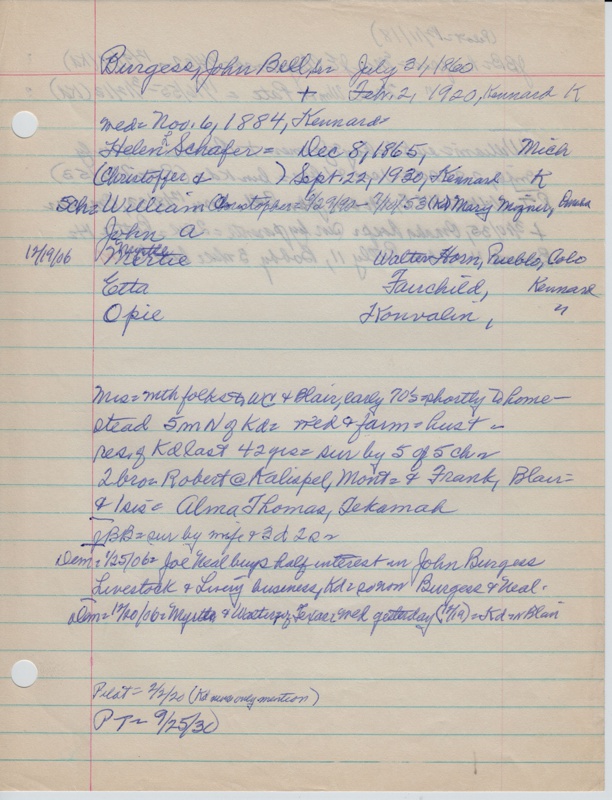 Burgess, John Bell, sr = July 31, 1860
+ Feb. 2, 1920, Kennard K
wed = Nov. 6, 1884, Kennard =
Helen Schafer = Dec 8, 1865, Mich
(Christoffer & ) Sept 22, 1930, Kennard K
5ch = William Christopher = 9/10/53 (Kd) Mary Omaha
John A
12/19/06 Myrtle Mertie Walter Horn, Pueblo, Colo
Etta Fairchild, Kennard
Opie Konvalin, "
Mrs = mth folks WC & Blair, early 70's = shortly to home-
stead 5 m N of Kd = wed & farm = hust =
res. of Kd last 42 yrs = sur by 5 of 5 ch =
2 bro = Robert @ Kalispel, Mont = & Frank, Blair =
& 1 sis = Alma Thomas, Tekamah
JBB = sur by wife & 3d 2s =
Dem = 1/25/06 = Joe Neal buys half interest in John Burgess
Livestock & Livery business, Kd = so now Burgess & Neal.
Dem = 12/20/06 = Myrtle & Walter Texas, wed yesterday (12/19) = Kd = Blair
Pilot = 2/2/20 (Kd news only mention)
PT = 9/25/30